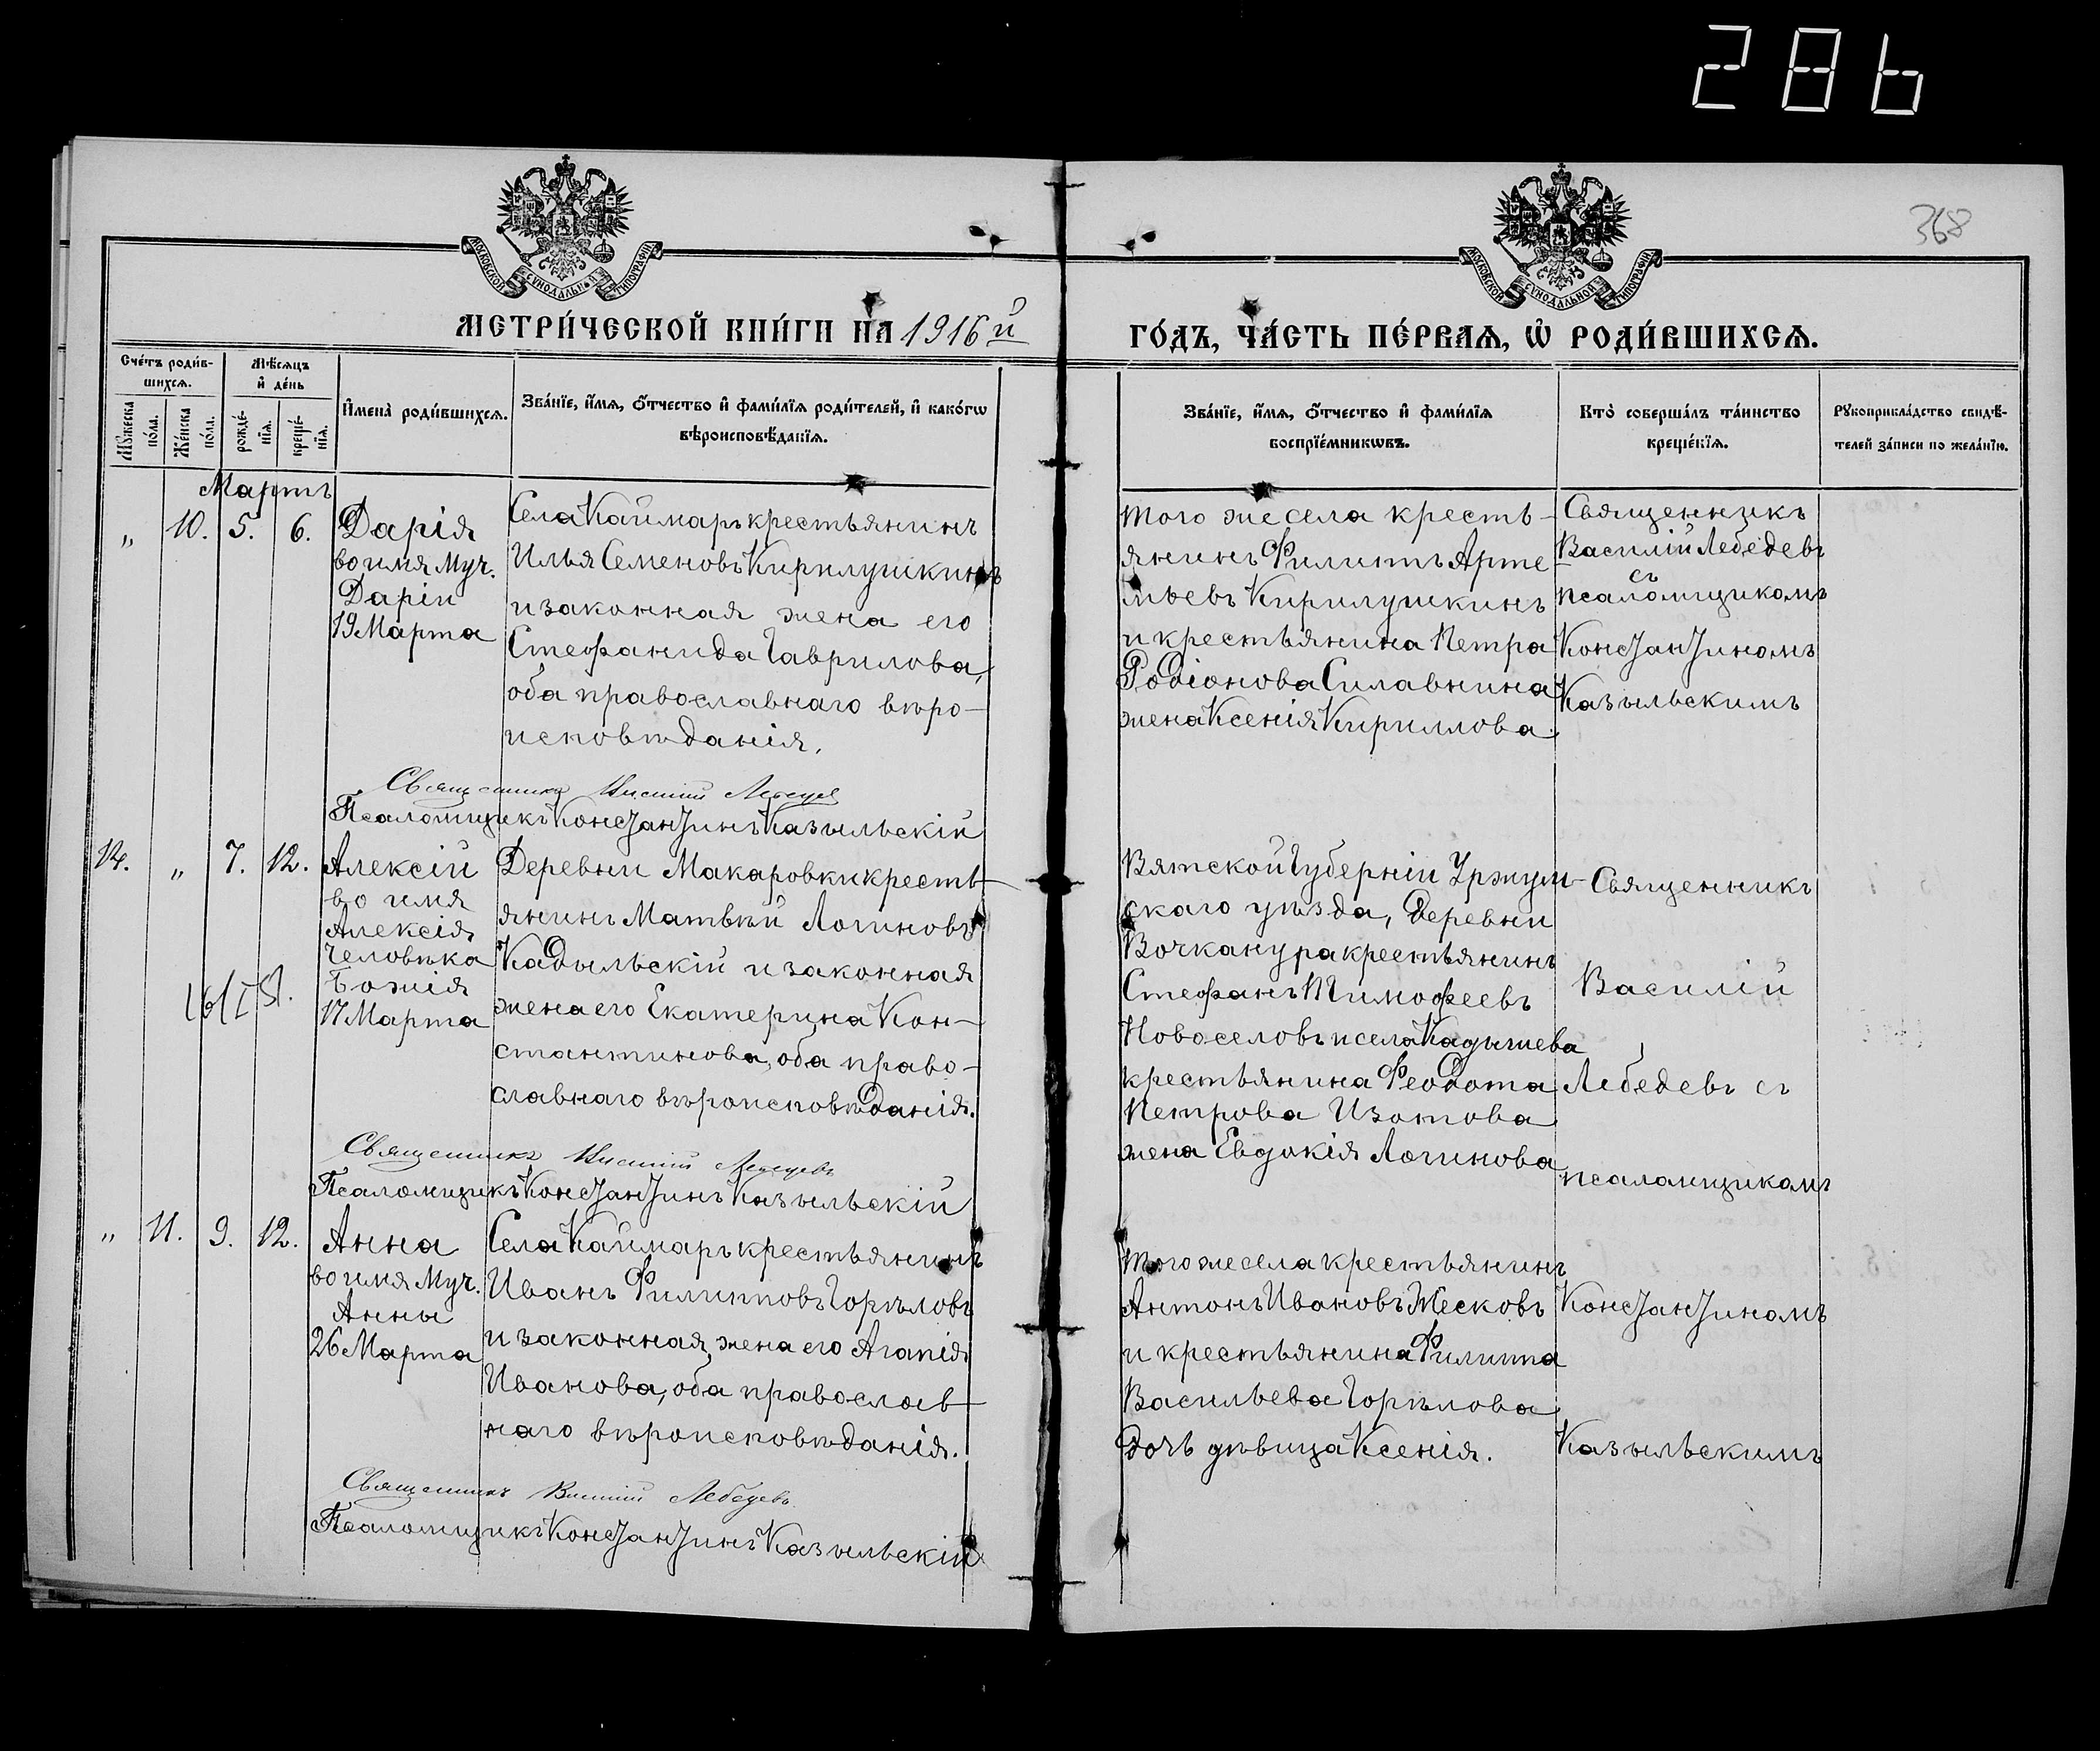 286
368
МОСКОВСКОЙ СѴНОДАЛЬНОЙ ТИПОГРАФІИ
МОСКОВСКОЙ СѴНОДАЛЬНОЙ ТИПОГРАФІИ
МЕТРИ́ЧЕСКОЙ КНИ́ГИ НА 1916 й
ГО́ДЪ, ЧА́СТЬ ПЕ́РВАѦ, Ѡ҆ РОДИ́ВШИХСѦ.
Сче́тъ роди́в-
шихсѧ.
Мѣ́сѧцъ
и҆ де́нь
Мꙋ́жеска по́ла.
Же́нска по́ла.
рожде́-нїѧ.
креще́-нїѧ.
И҆мена̀ роди́вшихсѧ.
Зва́нїе, и҆́мѧ, ѻ҆́тчество и҆ фами́лїѧ роди́телей, и҆ како́гѡ
вѣроисповѣ́данїѧ.
Зва́нїе, и҆́мѧ, ѻ҆́тчество и҆ фами́лїѧ
воспрїе́мникѡвъ.
Кто̀ соверша́лъ та́инство
креще́нїѧ.
Рꙋкоприкла́дство свидѣ́-
телей за́писи по жела́нїю.
Мартъ
„ 10. 5. 6.
Дарія
во имя Муч.
Даріи
19 Марта
Села Каймаръ крестьянинъ
Илья Семеновъ Кирилушкинъ
и законная жена его
Стефанида Гаврилова,
оба православнаго веро-
исповѣданія.
того же села кресть-
янинъ Филиппъ Арте
мьевъ Кирилушкинъ
и крестьянина Петра
Родіонова Силавнина
жена Ксенія Кириллова.
Священникъ
Василій Лебедевъ
съ
псаломщикомъ
Константиномъ
Казыльскимъ
Священникъ Василій Лебедев
Псаломщикъ Константинъ Казыльскій
14. „ 7. 12.
Алексій
во имя
Алексія
Человѣка
Божія
17 Марта
Деревни Макаровки кресть-
янинъ Матвѣй Логиновъ
Кадыльскій и законная
жена его Екатерина Кон-
стантинова, оба право-
славнаго вѣроисповѣданія.
Вятской Губерніи Уржум-
скаго уѣзда, Деревни
Вочканура крестьянинъ
Стефанъ Тимофеевъ
Новоселовъ и села Кадышева
крестьянина Феодота
Петрова Изотова
жена Евдокія Логинова
Священникъ
Василій
Лебедевъ съ
псаломщикомъ
Священникъ Василій Лебедевъ
Псаломщикъ Константинъ Казыльскій
„ 11. 9. 12.
Анна
во имя Муч.
Анны
26 Марта
Села Каймаръ крестьянинъ
Иванъ Филипповъ Горѣловъ
и законная жена его Агапія
Иванова, оба православ-
наго вѣроисповѣданія.
того же села крестьянинъ
Антонъ Ивановъ Песковъ
и крестьянина Филиппа
Васильева Горѣлова
дочь дѣвица Ксенія.
Константиномъ
Казыльскимъ
Священникъ Василій Лебедевъ
Псаломщикъ Константинъ Казыльскій